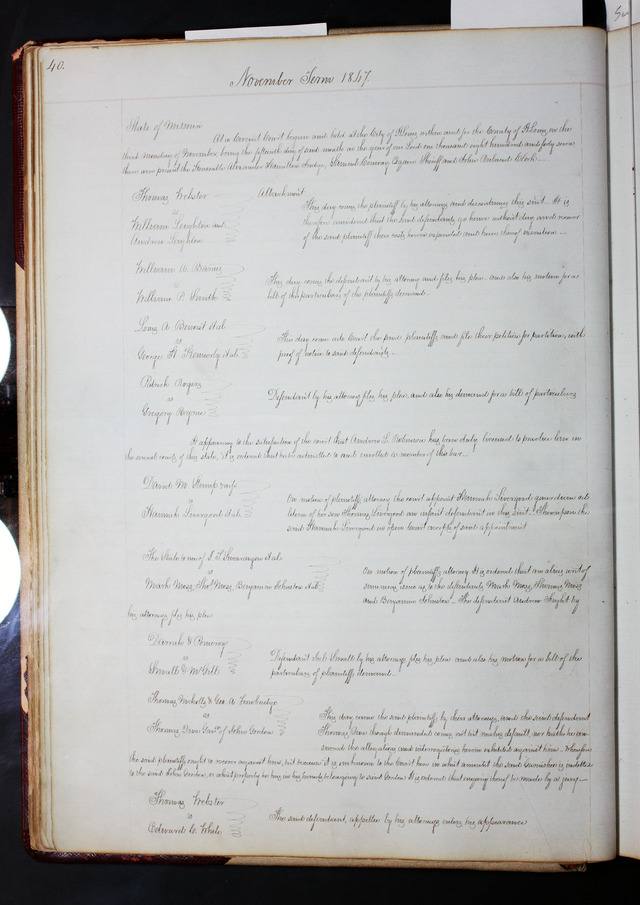 40.
November Term 1847
State of Missouri
At a Circuit Court begun and held at the City of St Louis within and for the County of St Louis, on the
third Monday of November being the fifteenth day of said month in the year of our Lord one thousand eight hundred and forty seven
there were present the Honorable Alexander Hamilton Judge, Samuel Conway Esquire Sheriff and John Clerk
Thomas Webster
vs
William Leighton and
Andrew Leighton
Attachment
This day comes the plaintiff by his attorney and discontinues this suit. It is
therefore considered that the said defendants go hence without day and recover
of the said plaintiff their costs herein expended and have thereof execution
William W. Barnes
vs
William P. Smith
This day comes the defendant by his attorney and files his plea and also his motion for a
bill of the particulars of the plaintiffs demand.
Long A Benoist et al
vs
George H Kennerly et al
This day come into Court the said plaintiffs and file their petition for partition, with
proof of notice to said defendants
Patrick Rogers
vs
Gregory Byrne
Defendant by his attorney files his plea and also his demand for a bill of particulars
It appearing to the satisfaction of the court that Andrew L. Robinson has been duly licensed to practice law in
the several courts of this state, it is ordered that he be admitted to and enrolled a member of this bar.
David M. wife
vs
Hannah Livergood et al
On motion of plaintiffs attorney the court appoint Hannah Livergood guardian ad
litem of her son Thomas Livergood an infant defendant in this suit. Thereupon the
said Hannah Livergood in open Court accepts of said appointment
The State to use of et al
vs
Mark Moss, Thos Moss, Benjamin Johnston et al
On motion of plaintiffs attorney it is ordered that an alias writ of
summons issue to the defendants Mark Moss, Thomas Moss
and Benjamin Johnston. The defendant Andrew by
his attorney files his plea
Darrah & Pomeroy
vs
Smalls & McGill
Defendant Smalls by his attorney files his plea and also his motion for a bill of the
particulars of plaintiffs demand.
Thomas & Geo. A.
vs
Thomas Garns. of John Gordon
This day come the said plaintiffs by their attorney, and the said defendant
Thomas though demanded comes not but makes default, nor hath he an-
swered the allegations and interrogatories herein exhibited against him. Wherefore
the said plaintiffs ought to recover against him, but because it is unknown to the Court here in what amount the said Garnishee is indebted
to the said John Gordon, or what property he has in his hands belonging to said Gordon. It is ordered that enquiry thereof be made by a jury
Thomas Webster
vs
Edward C. White
The said defendant, appellee by his attorney enters his appearance